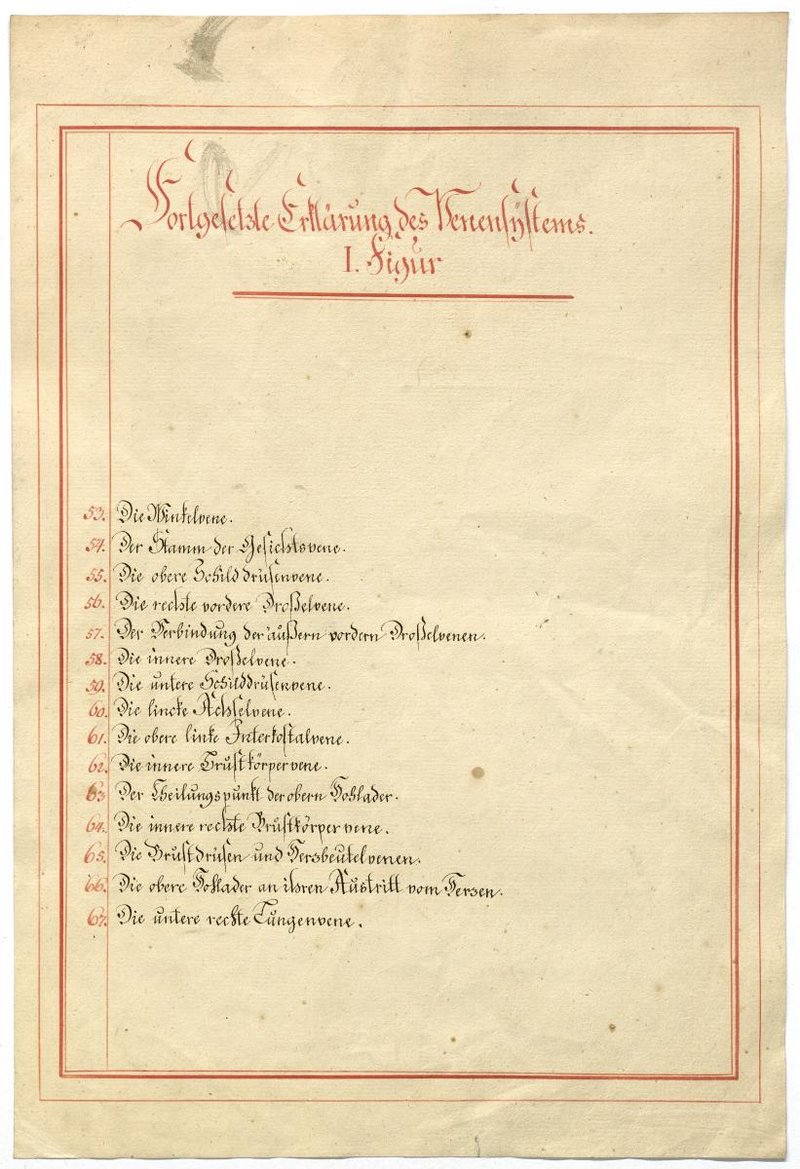 Fortgesetzte Erklärung des Venensÿstems.
I. Figur
53. Die Winkelvene.
54. Der Stamm der Gesichtsvene.
55. Die obere Schilddrüsenvene.
56. Die rechte vordere Droßelvene.
57. Der Verbindung der äußern vordern Droßelvenen.
58. Die innere Droßelvene.
59. Die untere Schilddrüsenvene.
60. Die lincke Achselvene.
61. Die obere linke Interkostalvene.
62. Die innere Brustkörpervene.
63. Der Theilungspunkt der obern Hohlader.
64. Die innere rechte Brustkörpervene.
65. Die Brustdrüsen und Herzbeutelvenen.
66. Die obere Hohlader an ihren Austritt vom Herzen.
67. Die untere rechte Lungenvene.